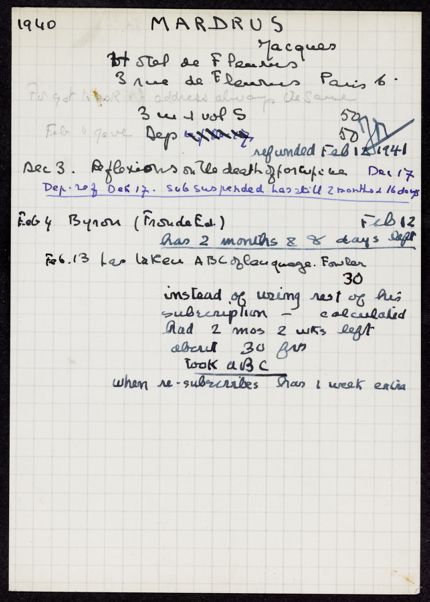 1940 MARDRUS
Jacques
Hotel de Fleurus
3 rue de Fleurus Paris 6.
address always the same
3 m 1 vol S 50
Feb 4 gave Dep 50
refunded Feb 12 1941
Dec 3. Reflexions on the death of porcupine Dec 17
Dep. ref Dec 17. Sub suspended has still 2 months & 16 days
Feb 4 Byron (Froude Ed.) Feb 12
has 2 months & 8 days left
Feb. 13 has taken ABC of language. Fowler
30
instead of using rest of his
subscription - calculated
had 2 mos 2 wks left
about 30 frs
took ABC
when re-subscribes has 1 week extra